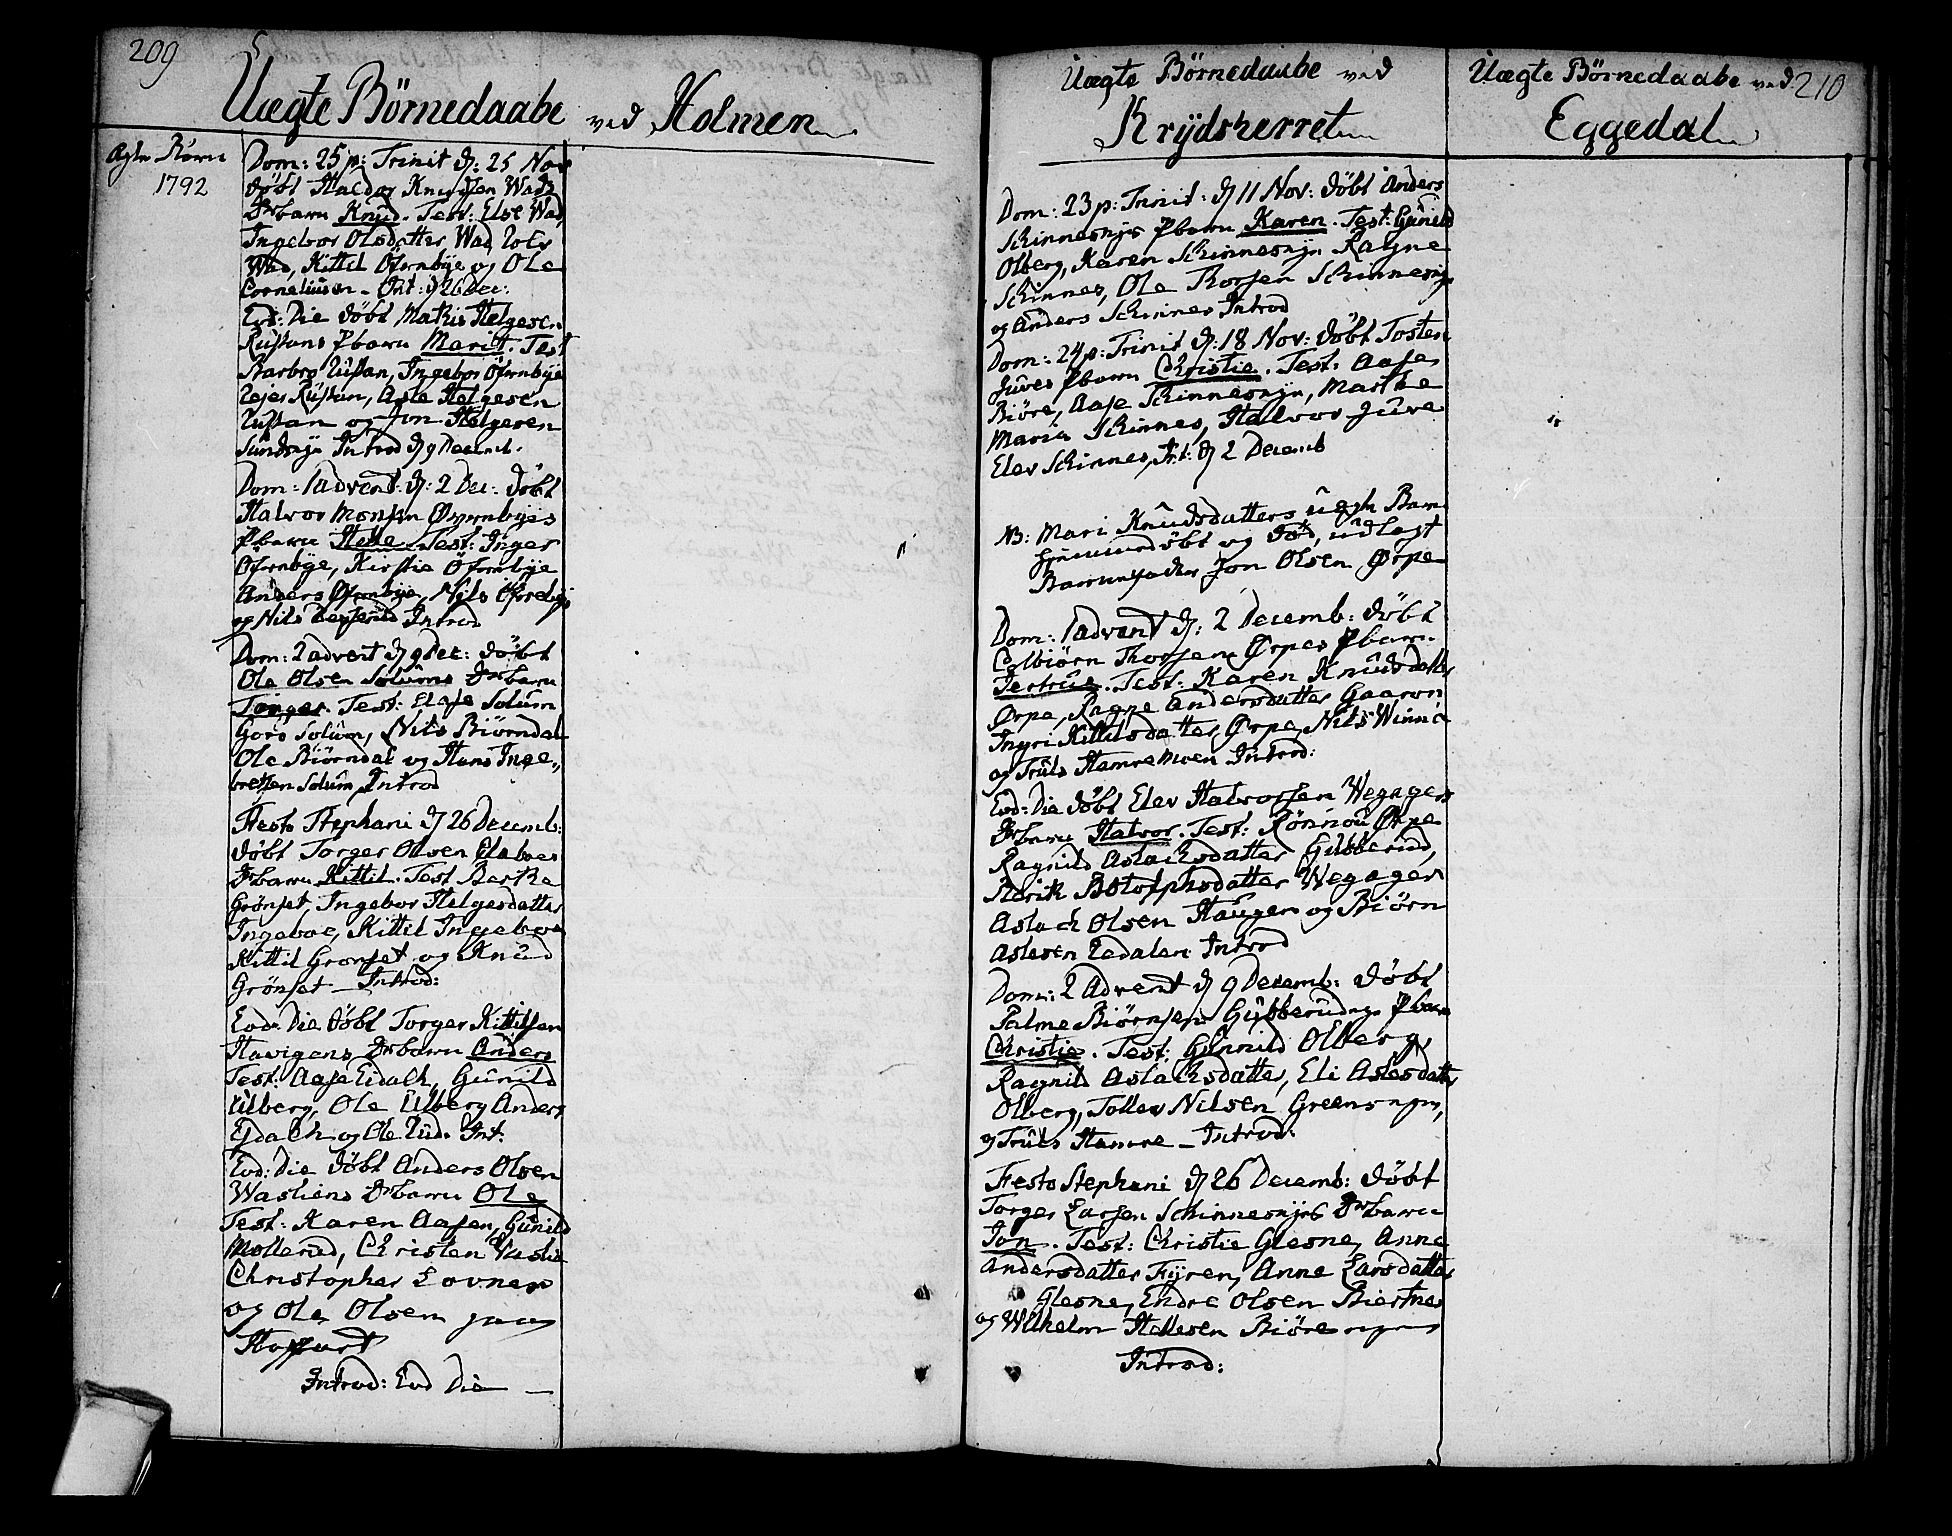 209
Uægte Börnedaabe ved Holmen
Ægte Börn
1792
Dom: 25 p: Trinit d: 25 Nov
döbt Haldor Knudsen Wads
Drbarn Knud. Test: Else Wad,
Ingebor Olsdatter Wad
Wad, Kittil Öfernbye og Ole
Corneliusen - Int: d 26 Dec:
Eod: Die döbt Mathis Helgesen
Rustans Pbarn Marit. Test
Barbro Rustan, Ingebor Öfernbye
Rejer Rustan, Asle Helgesen
Rustan og Jon Helgesen
Sundnyn Introd d 9 Decemb.
Dom: 1 advent: d: 2 Dec: döbt
Halvor Monsen Øvernbyes
Pbarn Hege. Test: Inger
Öfernbye, Kirstie Öfernbye
Anders Öfernbye, Nils Öfernbye
og Nils Introd
Dom: 2 advent d 9 Dec: döbt
Ole Olsen Solums Drbarn
Torger. Test: Solum
Goro Solum, Nils Biörndal
Ole Biörndal og Hans Inge„
bretsen Solum, Introd
Festo Stephani d 26 Decemb:
döbt Torger Olsen
Drbarn Kittil. Test Berthe
Grönset Ingebor Helgesdatter
Ingeboe, Kittil Ingeboe
Kittil Grönset og Knud
Grönset - Introd:
Eod: Die döbt Torger Kittilsen
Havigens Drbarn Anders
Test: Aase Eidach, Gunild
Ulberg, Ole Ulberg Anders
Ejdach og Ole Rud. Int:
Eod: Die döbt Anders Olsen
Wasliens Drbarn Ole
Test: Karen Aasen, Gunild
Mollerud, Christen Vaslie
Christopher Lovnes
og Ole Olsen
Hoffart
Introd: Eod Die —
Uægte Börnedaabe ved
Krÿdsherret
Dom: 23 p: Trinit: d 11 Nov: döbt Anders
Skinnesnys Pbarn Karen. Test: Gunild
Olberg, Karen Skinnesnyn Ragne
Skinnes, Ole Thorsen Skinnesnyn
og Anders Skinnes Introd
Dom: 24 p: Trinit d: 18 Nov: döbt Tosten
Jures Pbarn Christie. Test: Aase
Biöre, Aase Skinnesnyn, Marthe
Maria Skinnes, Halvor Jure
Elev Skinnes, Int: d 2 Decemb
NB: Mari Knudsdatters uægte Barn
hjemmedöbt og död, udlagt
Barnefader Jon Olsen Ørpe
Dom: 1 advent d: 2 Decemb: döbt
Colbiörn Thorsen Ørpes Pbarn
Jertrue. Test: Karen Knudsdatter
Ørpe, Ragne Andersdatter Gaaren
Ingri Kittilsdatter Ørpe, Nils Winnie
og Truls Hamremoen Introd:
Eod: Die döbt Elev Halvorsen Wegagers
Drbarn Halvor. Test: Rönnou Ørpe
Ragnild Aslachsdatter Gubberud,
Botolphsdatter Wegager
Aslach Olsen Haugen og Biörn
Aslesen Introd
Dom: 2 Advent d 9 Decemb: döbt
Palme Biörnsen Gubberuds Pbarn
Christie. Test: Gunnild Olberg,
Ragnild Aslachsdatter, Eli Aslesdatter
Olberg, Tollev Nilsen Greensnyn,
og Truls Hamre - Introd:
Festo Stephani d 26 Decemb: döbt
Torger Larsen Skinnesnyes Drbarn
Jon. Test: Christie Glesne, Anne
Andersdatter Fyren, Anne Larsdatter
Glesne, Endre Olsen Biertnes
og Wilhelm Hallesen Biöre
Introd:
Uægte Börnedaabe ved 210
Eggedal